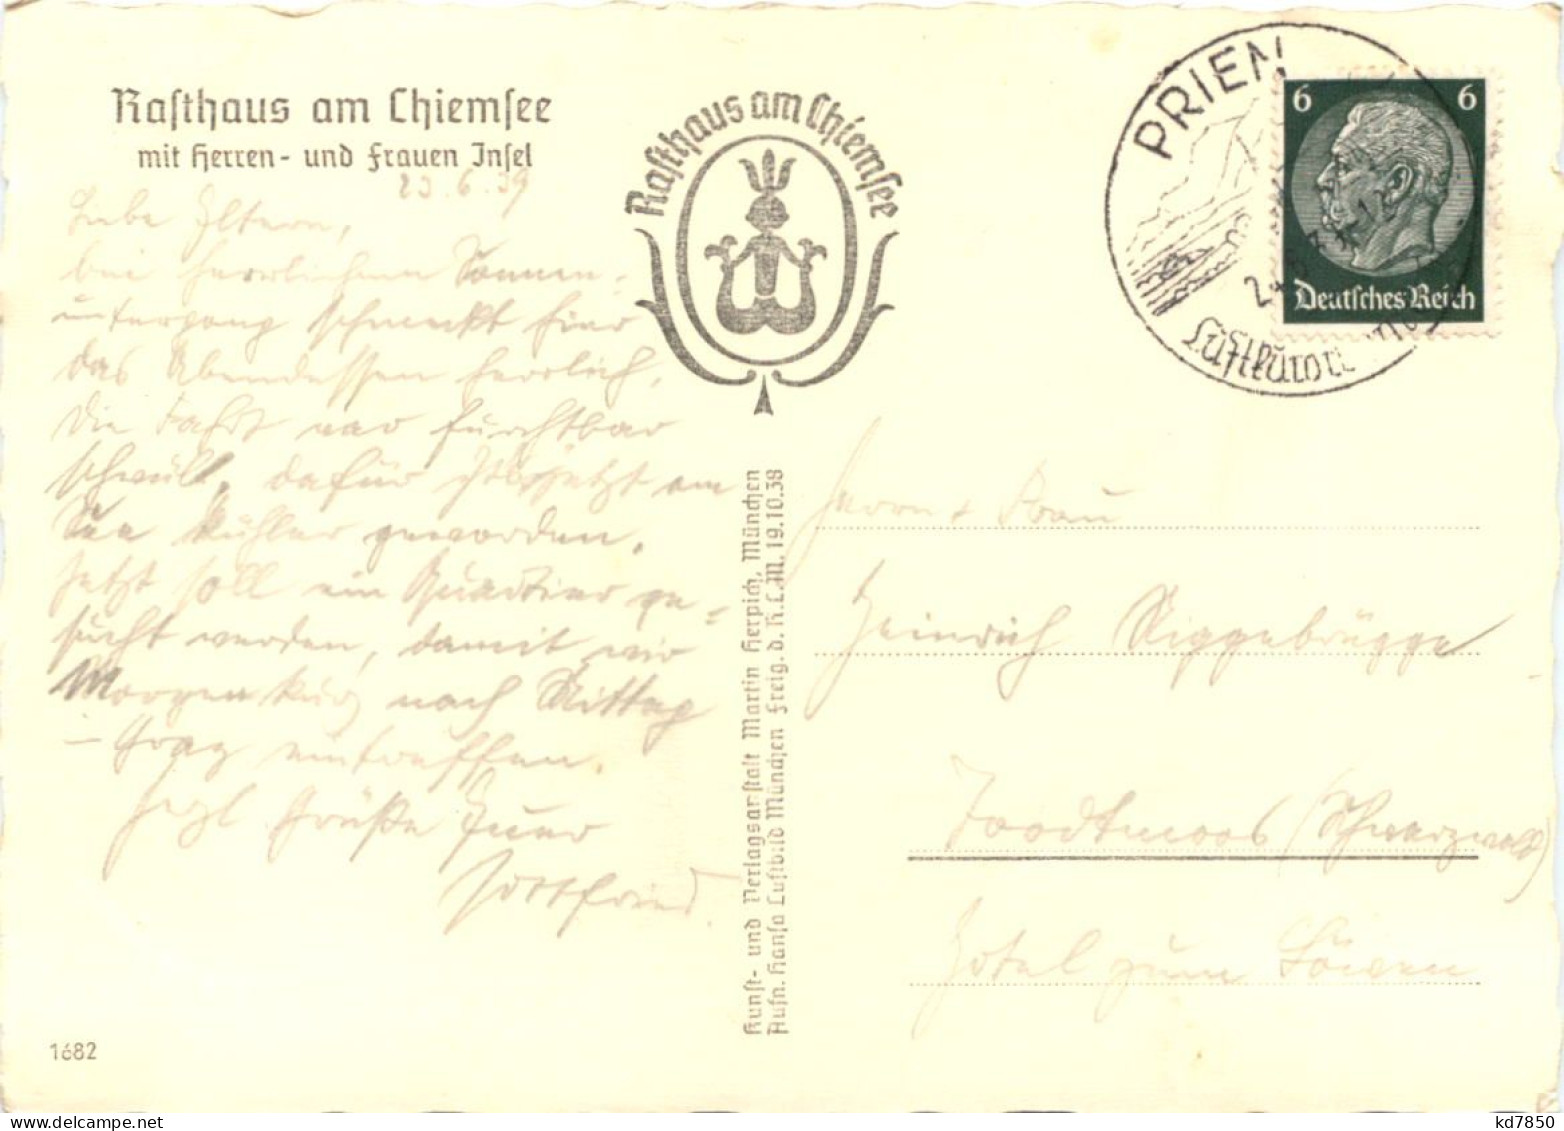 Rasthaus am Chiemsee
mit Herren- und Frauen Insel
23.6.39
Liebe Eltern,
bei herrlichem Sonnen-
untergang schmeckt hier
das Abendessen herrlich.
Die Fahrt war furchtbar
schwül, dafür ist es jetzt am
See kühler geworden.
Jetzt soll ein Quartier ge-
sucht werden, damit wir
Morgen kurz nach Mittag
Graz eintreffen.
Herzl Grüße Euer
Gottfried.
1682
Rasthaus am Chiemsee
Kunst- und Verlagsanstalt Martin Herpich, München
Aufn. Hansa Luftbild München Freig. d. R.L.M. 19.10.38
PRIEN
Luftkurort
6 6
Deutsches Reich
Herrn + Frau
Heinrich Niggebrügge
Todtmoos (Schwarzwald)
Hotel zum Löwen
kd7850